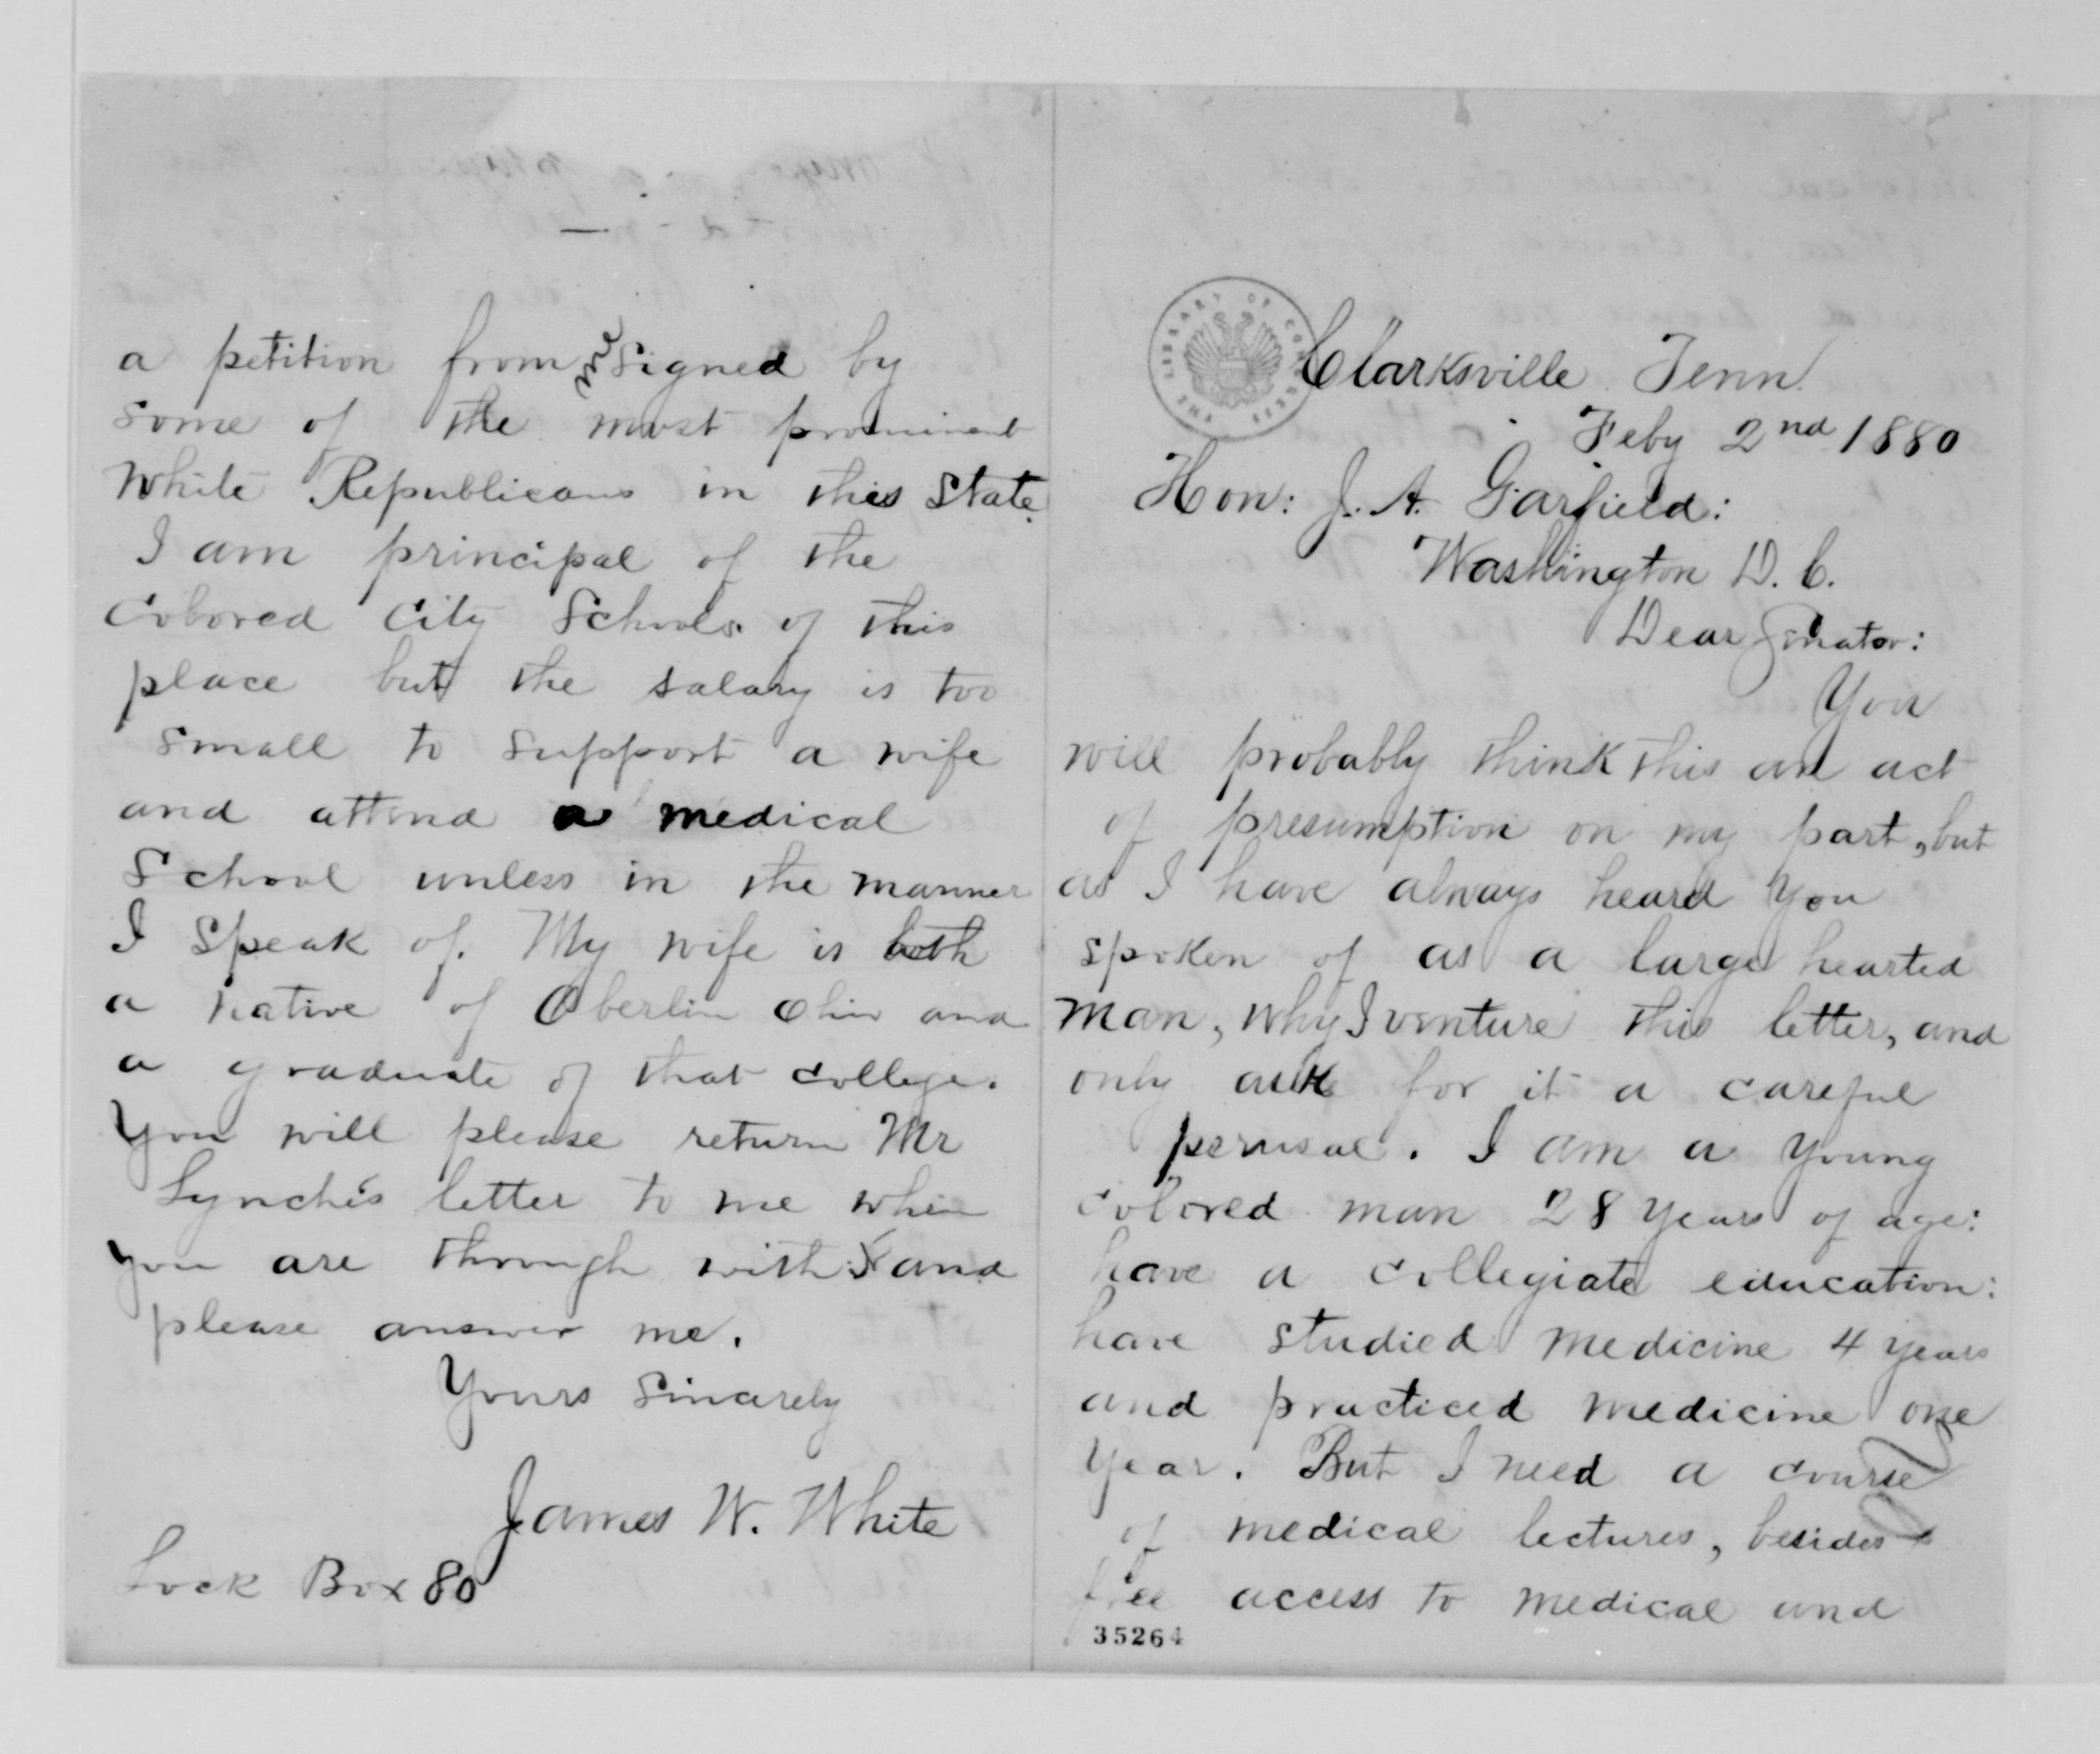 a petition from me signed by
some of the most prominent
White Republicans in this State.
I am principal of the
Colored City Schools of this
place but the salary is too
small to support a wife
and attend a medical
School unless in the manner
I speak of. My wife is both
a native of Oberlin Ohio and
a graduate of that college.
You will please return Mr
Lynch's letter to me when
you are through with it and
please answer me.
Yours Sincerely
James W. White
Lock Box 80
THE LIBRARY OF CONGRESS
Clarksville Tenn.
Feby 2nd 1880
Hon: J. A. Garfield:
Washington D. C.
Dear Senator:
You
will probably think this an act
of presumption on my part, but
as I have always heard you
spoken of as a large hearted
man, why I venture this letter, and
only ask for it a careful
perusal. I am a young
colored man 28 years of age:
have a collegiate education:
have studied medicine 4 years
and practiced medicine one
year. But I need a course
of medical lectures, besides
free access to medical and
35264